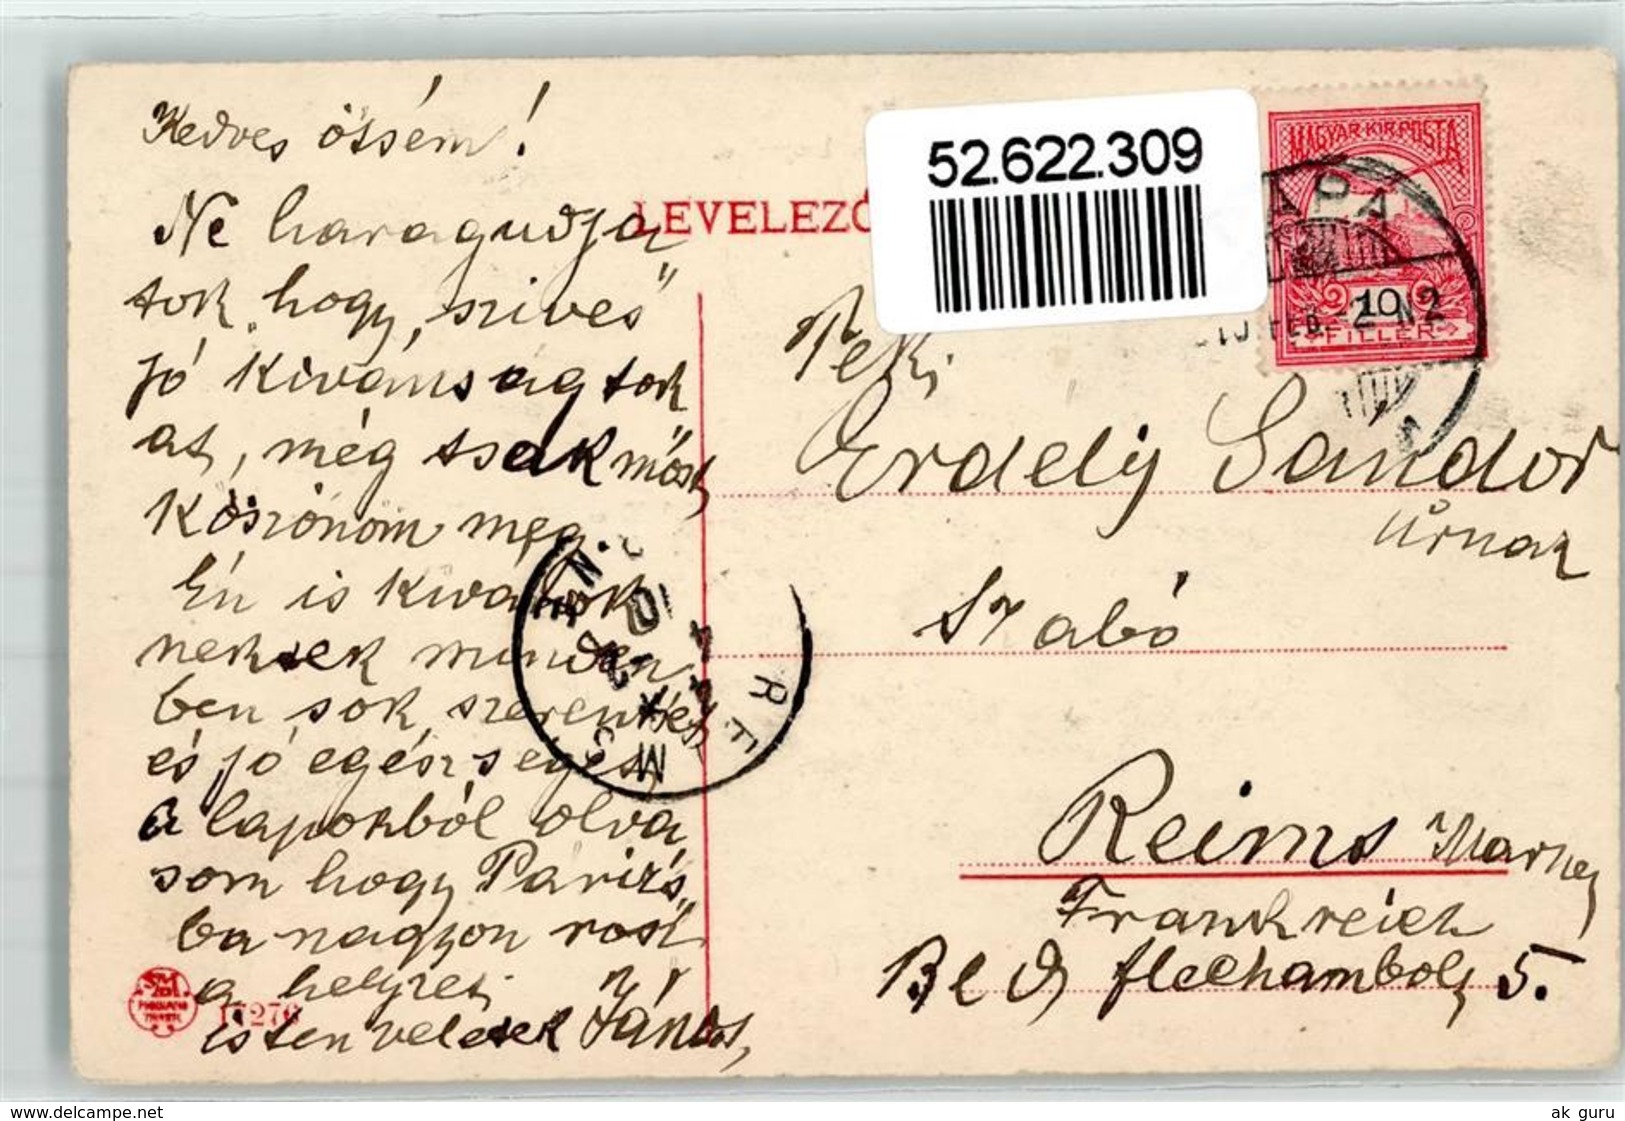 Kedves össém!
Ne haragudja
tok, hogy "szives"
jó kivánságtok
at, még tsak most
köszönöm meg.
Én is kivánok
nektek minden
ben sok szerentset
és jó egésséget
a lapokból olva
som hogy Párizs"
ba nagyon rosz
a helyzet
isten veletek János,
17276
LEVELEZŐ
52.622.309
MAGYAR KIR. POSTA
10
FILLÉR
PÁPA
FEB. -2 N2
REIMS
Teki.
Erdély Sándor
Úrnaz
Szabó
Reims Marne
Frankreich
Bld flechambolz 5.
www.delcampe.net
ak guru